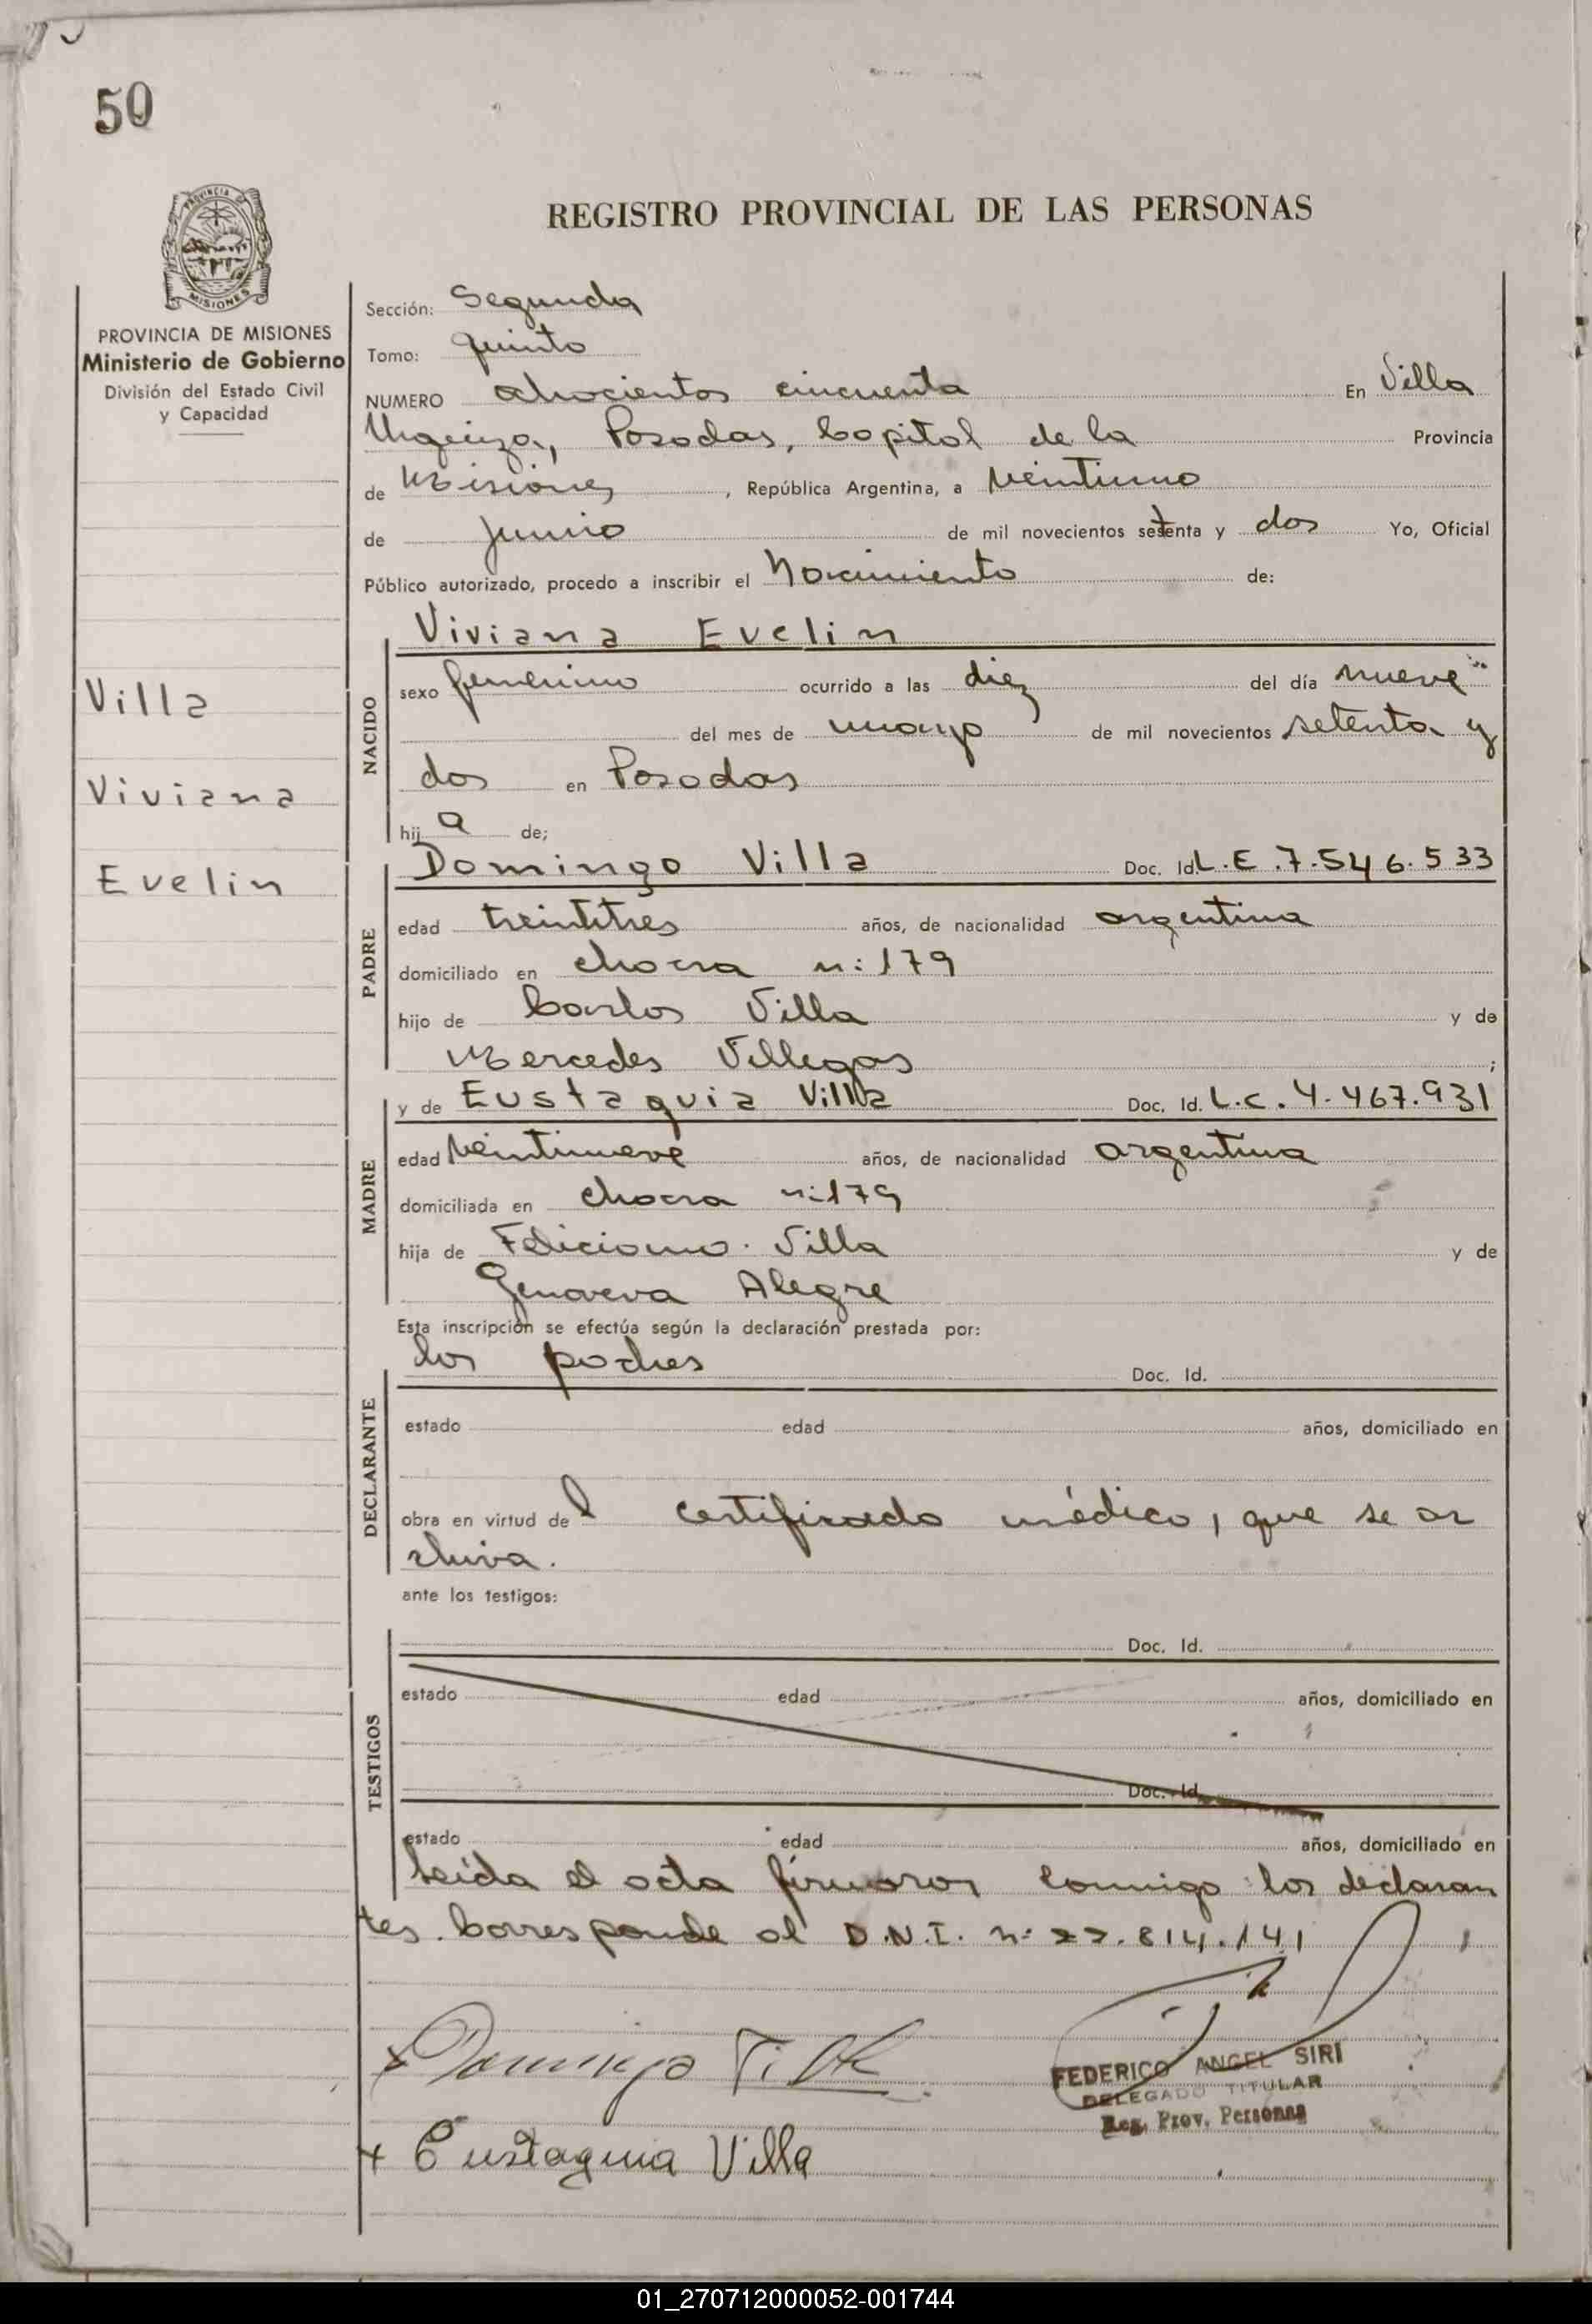 50
REGISTRO PROVINCIAL DE LAS PERSONAS
PROVINCIA DE
MISIONES
PROVINCIA DE MISIONES
Ministerio de Gobierno
División del Estado Civil
y Capacidad
Villa
Viviana
Evelin
Sección: Segunda
Tomo: quinto
NUMERO ochocientos cincuenta En Villa
Urquiza, Posadas, Capital de la Provincia
de Misiones, República Argentina, a veintiuno
de junio de mil novecientos setenta y dos Yo, Oficial
Público autorizado, procedo a inscribir el Nacimiento de:
Viviana Evelin
NACIDO
sexo femenino ocurrido a las diez del día nueve
del mes de mayo de mil novecientos setenta y
dos en Posadas
hij a de;
PADRE
Domingo Villa Doc. Id. L.E. 7.546.533
edad treintitres años, de nacionalidad argentina
domiciliado en chacra n: 179
hijo de Carlos Villa y de
Mercedes Villegas ;
MADRE
y de Eustaquia Villa Doc. Id. L.C. 4.467.931
edad veintinueve años, de nacionalidad argentina
domiciliada en chacra n: 179
hija de Feliciano Villa y de
Genoveva Alegre
Esta inscripción se efectúa según la declaración prestada por:
DECLARANTE
los padres Doc. Id.
estado edad años, domiciliado en
obra en virtud del certificado médico, que se ar
chiva.
ante los testigos:
TESTIGOS
Doc. Id.
estado edad años, domiciliado en
Doc. Id.
estado edad años, domiciliado en
Leída el acta firmaron conmigo los declaran
tes. Corresponde al D.N.I. n: 22.814.141
Domingo Villa
FEDERICO ANGEL SIRI
DELEGADO TITULAR
Reg. Prov. Personas
+ Eustaquia Villa
01_270712000052-001744